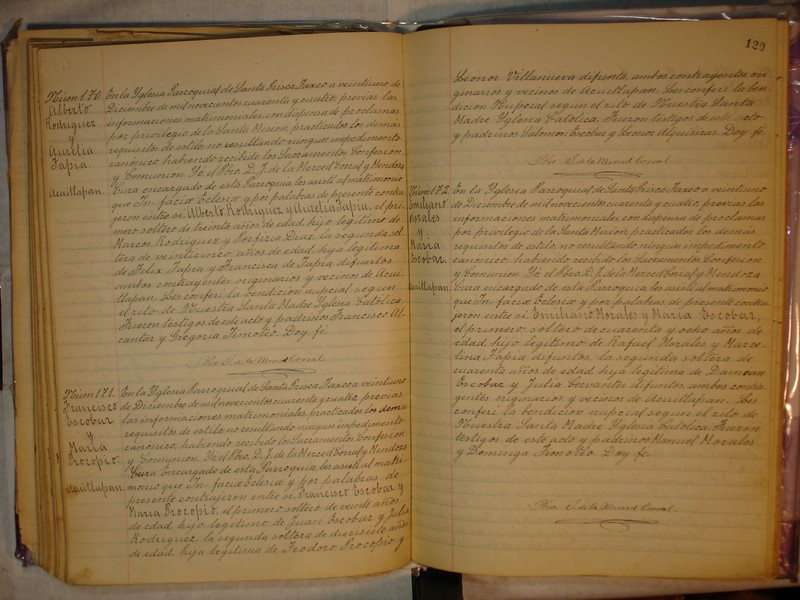 Núm 170.
Alberto
Rodriguez
y
Aurelia
Tapia.
Acuitlapan.
En la Yglesia Parroquial de Santa Prisca Taxco a veintiuno de
Diciembre de mil novecientos cuarenta y cuatro, previas las
informaciones matrimoniales, con dispensa de proclamas
por privilegio de la Santa Mision, practicados los demás
requisitos de estilo, no resultando ningun impedimento
canónico, habiendo recibido los Sacramentos Confesion
y Comunion. Yo, el Pbro. D. J. de la Merced Corral y Mendoza
Cura encargado de esta Parroquia les asistí al matrimonio
que In-faciæ Eclesiæ y por palabras de presente contra-
jeron entre sí, Alberto Rodriguez y Aurelia Tapia, el pri-
mero soltero de treinta años de edad, hijo legitimo de
Marcos Rodriguez y Porfiria Diaz, la segunda sol-
tera de veinticinco años de edad, hija legitima
de Felix Tapia y Francisca de Tapia difuntos
ambos contrayentes originarios y vecinos de Acui-
tlapan. Les conferí la bendicion nupcial segun
el rito de Nuestra Santa Madre Yglesia Católica.
Fueron testigos de este acto y padrinos Francisco Al-
cantar y Gregoria Timoteo. Doy fé.
Pbro. J. de la Merced Corral
Núm 171.
Francisco
Escobar
y
Maria
Procopio.
Acuitlapan.
En la Yglesia Parroquial de Santa Prisca Taxco a veintiuno
de Diciembre de mil novecientos cuarenta y cuatro, previas
las informaciones matrimoniales, practicados los demas
requisitos de estilo, no resultando ningun impedimento
canónico, habiendo recibido los Sacramentos Confesion
y Comunion. Yo, el Pbro. D. J. de la Merced Corral y Mendoza
Cura Encargado de esta Parroquia les asistí al matri-
monio que In-faciæ Eclesiæ y por palabras de
presente contrajeron entre sí, Francisco Escobar y
Maria Procopio, el primero soltero de veinte años
de edad, hijo legitimo de Juan Escobar y Julia
Rodriguez, la segunda soltera de diecisiete años
de edad, hija legitima de Teodoro Procopio y
129
Leonor Villanueva difunta, ambos contrayentes ori-
ginarios y vecinos de Acuitlapan. Les conferí la ben-
dicion Nupcial segun el rito de Nuestra Santa
Madre Yglesia Católica. Fueron testigos de este acto
y padrinos Salomon Escobar y Leonor Alquisiras. Doy fé.
Pbro. J. de la Merced Corral
Núm 172.
Emiliano
Morales
y
Maria
Escobar.
Acuitlapan.
En la Yglesia Parroquial de Santa Prisca Taxco a veintiuno
de Diciembre de mil novecientos cuarenta y cuatro, previas las
informaciones matrimoniales con dispensa de proclamas
por privilegio de la Santa Mision, practicados los demás
requisitos de estilo, no resultando ningun impedimento
canónico, habiendo recibido los Sacramentos Confesion
y Comunion. Yo, el Pbro. D. J. de la Merced Corral y Mendoza
Cura encargado de esta Parroquia les asistí al matrimonio
que In-faciæ Eclesiæ y por palabras de presente contra-
jeron entre sí. Emiliano Morales y Maria Escobar,
el primero soltero de cuarenta y ocho años de
edad, hijo legitimo de Rafael Morales y Marce-
lina Tapia difuntos, la segunda soltera de
cuarenta años de edad hija legitima de Damean
Escobar y Julia Cervantes difuntos, ambos contra-
yentes originarios y vecinos de Acuitlapan. Les
conferí la bendicion nupcial segun el rito de
Nuestra Santa Madre Yglesia Católica. Fueron
testigos de este acto y padrinos Manuel Morales
y Dominga Timoteo. Doy fé.
Pbro. J. de la Merced Corral